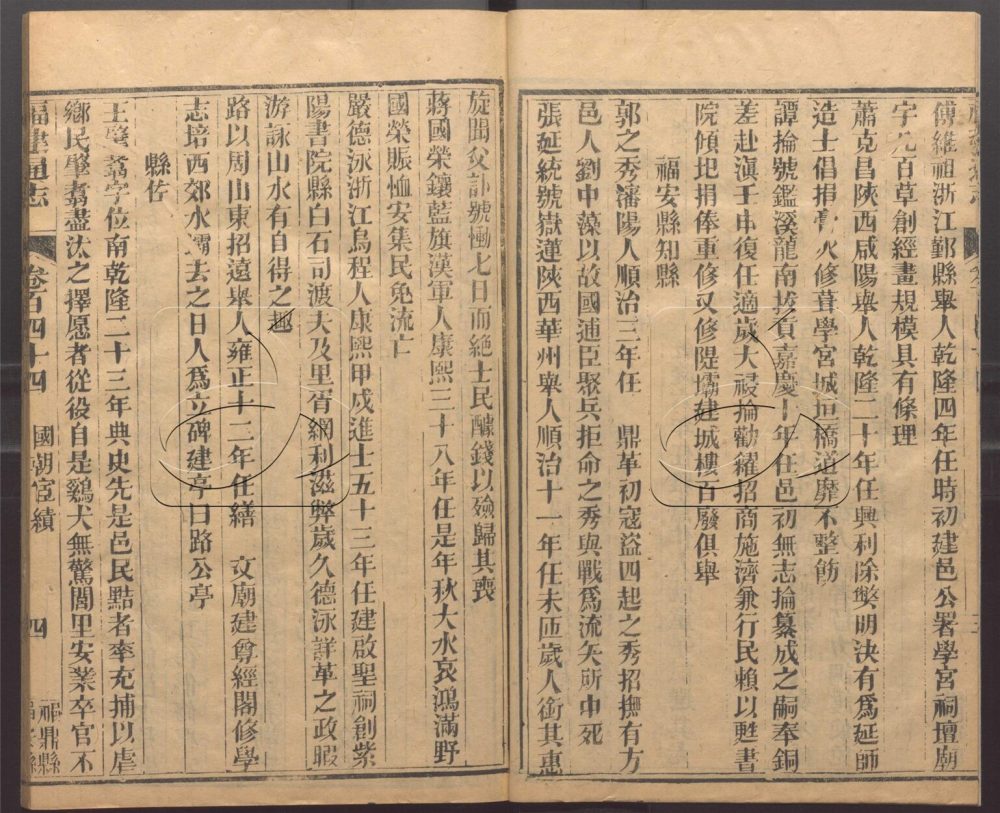 傅維祖浙江鄞縣舉人乾隆四年任時初建邑公署學宮祠壇廟
宇凡百草創經畫規模具有條理
蕭克昌陜西咸陽舉人乾隆二十年任興利除獘明決有爲延師
造士倡捐膏火修葺學宮城垣橋道靡不整飭
譚掄號鑑溪龍南拔貢嘉慶十年任邑初無志掄纂成之嗣奉銅
差赴滇壬申復任適歲大祲掄勸糴招商施濟兼行民賴以甦書
院傾圮捐俸重修又修隄壩建城樓百廢俱舉
福安縣知縣
郭之秀瀋陽人順治三年任 鼎革初寇盜四起之秀招撫有方
邑人劉中藻以故國逋臣聚兵拒命之秀與戰爲流矢所中死
張延統號嶽蓮陜西華州舉人順治十一年任未匝歲人銜其惠
旋聞父訃號慟七日而絕士民醵錢以殮歸其喪
蔣國榮鑲藍旗漢軍人康熙三十八年任是年秋大水哀鴻滿野
國榮賑恤安集民免流亡
嚴德泳浙江烏程人康熙甲戌進士五十三年任建啟聖祠創紫
陽書院縣白石司渡夫及里胥網利滋獘歲久德泳詳革之政暇
游詠山水有自得之趣
路以周山東招遠舉人雍正十二年任繕 文廟建尊經閣修學
志培西郊水壩去之日人爲立碑建亭曰路公亭
縣佐
王肇羣字位南乾隆二十三年典史先是邑民黠者率充捕以虐
鄉民肇羣盡汰之擇愿者從役自是雞犬無驚閭里安業卒官不
福建通志 卷百四十四 國朝宦績 四 福鼎縣 福安縣